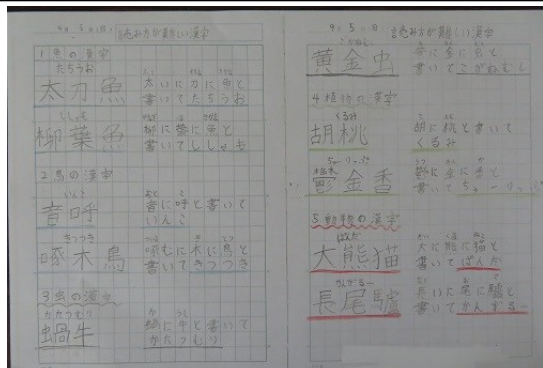 9月5日(日) 読み方が難しい漢字
1 魚の漢字
たちうお
太刀魚
太いに刀に魚と
書いてたちうお
ししゃも
柳葉魚
柳に葉に魚と
書いてししゃも
2 鳥の漢字
いんこ
音呼
音に呼と書いて
いんこ
きつつき
啄木鳥
啄むに木に鳥と
書いてきつつき
3 虫の漢字
かたつむり
蝸牛
蝸に牛と書いて
かたつむり
9月5日 読み方が難しい漢字
こがねむし
黄金虫
黄に金に虫と
書いてこがねむし
4 植物の漢字
くるみ
胡桃
胡に桃と書いて
くるみ
ちゅーりっぷ
鬱金香
鬱に金に香と
書いてちゅーりっぷ
5 動物の漢字
ぱんだ
大熊猫
大に熊に猫と
書いてぱんだ
かんがるー
長尾驢
長いに尾に驢と
書いてかんがるー